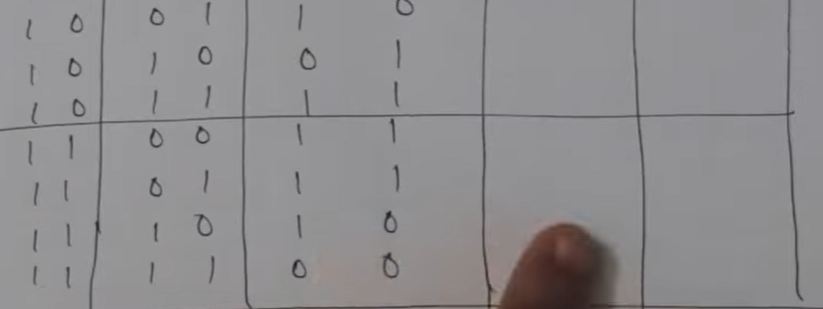 1 0 0 1 1 0
1 0 1 0 0 1
1 0 1 1 1 1
1 1 0 0 1 1
1 1 0 1 1 1
1 1 1 0 1 0
1 1 1 1 0 0